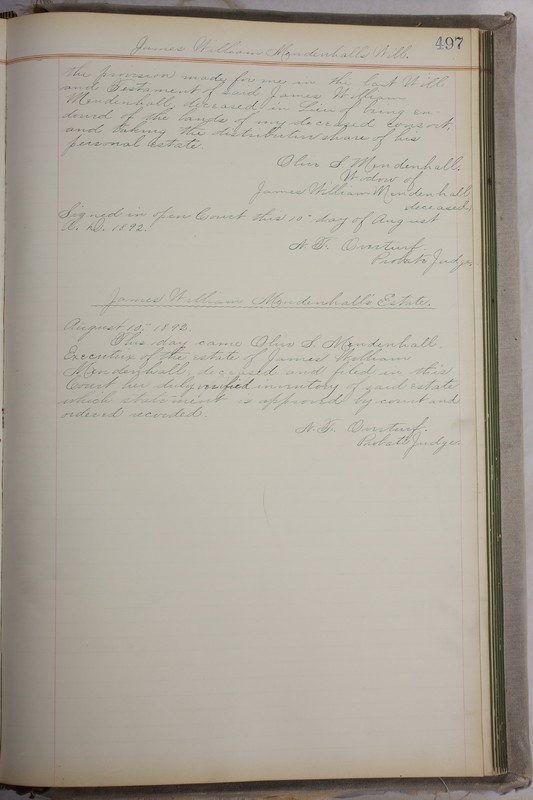 James William Mendenhall's Will.
497
the provision made for me in the last Will
and Testament of said James William
Mendenhall, deceased, in Lieu of being en
dowed of the lands of my deceased consort,
and taking the distributive share of his
personal Estate.
S. Mendenhall,
Widow of
James William Mendenhall
deceased.
Signed in open Court this 10" day of August
A. D. 1892.
Probate Judge
James William Mendenhall's Estate.
August 10", 1892.
This day came S. Mendenhall,
Executrix of the estate of James William
Mendenhall, deceased and filed in this
Court her duly verified inventory of said estate
which statement is approved by court and
ordered recorded.
Probate Judge.